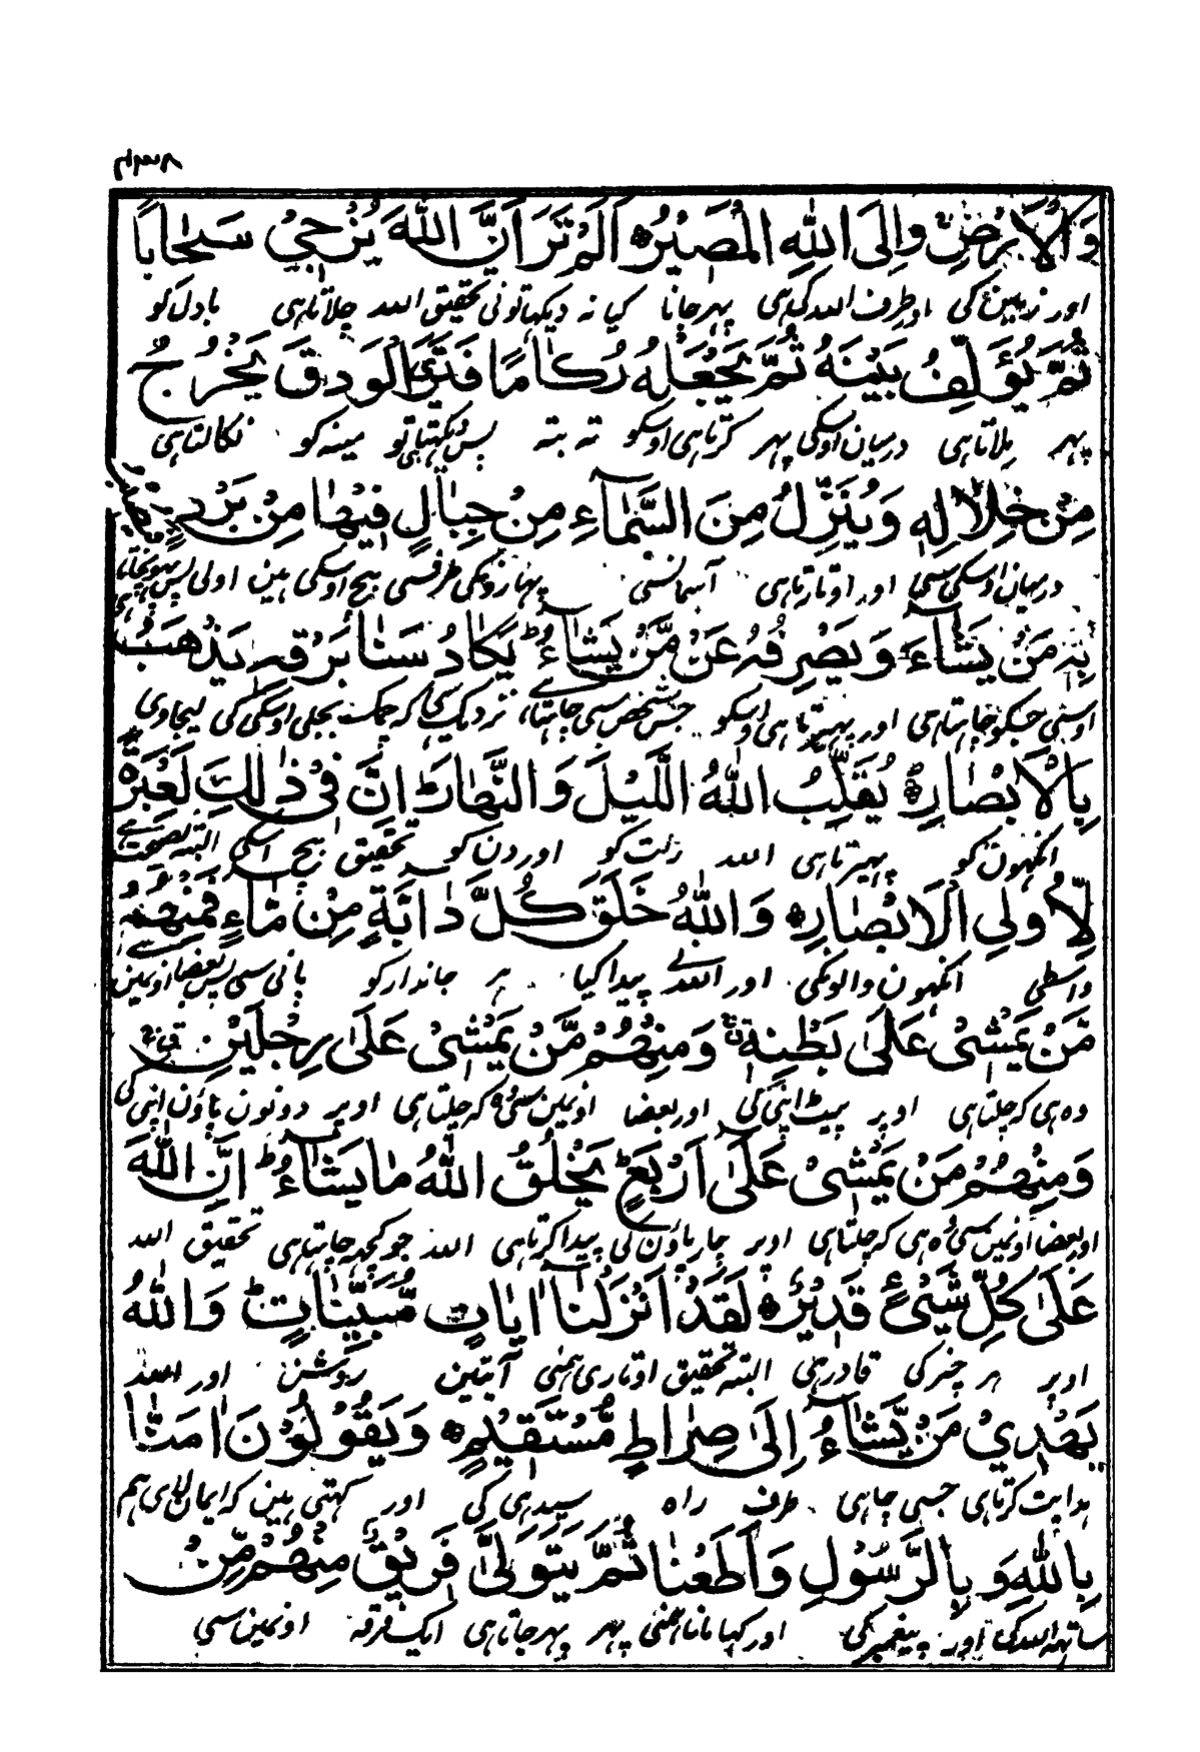 وَالْاَرْضِ وَاِلَى اللّٰهِ الْمَصِيْرُ ۝ اَلَمْ تَرَ اَنَّ اللّٰهَ يُزْجِيْ سَحَابًا
اور زمین کی اور طرف اللہ کی ہی پہر جانا کیا نہ دیکہا تونی تحقیق اللہ چلاتا ہی بادل کو
ثُمَّ يُؤَلِّفُ بَيْنَهٗ ثُمَّ يَجْعَلُهٗ رُكَامًا فَتَرَى الْوَدْقَ يَخْرُجُ
پہر ملاتا ہی درمیان اوسکی پہر کرتا ہی اوسکو تہ بتہ پس دیکہتا ہی تو مینہ کو نکالتا ہی
مِنْ خِلَالِهٖ وَيُنَزِّلُ مِنَ السَّمَآءِ مِنْ جِبَالٍ فِيْهَا مِنْ بَرَدٍ فَيُصِيْبُ
درمیان اوسکی سی اور اوتارتا ہی آسمانسی پہاڑونکی طرفسی بیچ اوسکی ہین اولی پس پہونچاتا ہی
بِهٖ مَنْ يَّشَآءُ وَيَصْرِفُهٗ عَنْ مَّنْ يَّشَآءُ ؕ يَكَادُ سَنَا بَرْقِهٖ يَذْهَبُ
اوسی جسکو چاہتا ہی اور پہیرتا ہی اوسکو جس شخص سی چاہتا نزدیک ہی کہ چمک بجلی اوسکی کی لیجاوی
بِالْاَبْصَارِ ۝ يُقَلِّبُ اللّٰهُ الَّيْلَ وَالنَّهَارَ ؕ اِنَّ فِيْ ذٰلِكَ لَعِبْرَةً
آنکہون کو پہیرتا ہی اللہ رات کو اور دن کو تحقیق بیچ اسکی البتہ نصیحت ہے
لِّاُولِي الْاَبْصَارِ ۝ وَاللّٰهُ خَلَقَ كُلَّ دَآبَّةٍ مِّنْ مَّآءٍ فَمِنْهُمْ
واسطی آنکہون والونکی اور اللہ نے پیدا کیا ہر جاندار کو پانی سی پس بعضا اونمین
مَّنْ يَّمْشِيْ عَلٰى بَطْنِهٖ وَمِنْهُمْ مَّنْ يَّمْشِيْ عَلٰى رِجْلَيْنِ
وہ ہی کہ چلتا ہی اوپر پیٹ اپنی کی اور بعضا اونمین سی وہ کہ چلتا ہی اوپر دونون پاؤن اپنی کی
وَمِنْهُمْ مَّنْ يَّمْشِيْ عَلٰى اَرْبَعٍ ؕ يَخْلُقُ اللّٰهُ مَا يَشَآءُ ؕ اِنَّ اللّٰهَ
اور بعضا اونمین سی وہ ہی کہ چلتا ہی اوپر چار پاؤن کی پیدا کرتا ہی اللہ جو کچہہ چاہتا ہی تحقیق اللہ
عَلٰى كُلِّ شَيْءٍ قَدِيْرٌ ۝ لَقَدْ اَنْزَلْنَا اٰيٰاتٍ مُّبَيِّنَاتٍ ؕ وَاللّٰهُ
اوپر ہر چیز کی قادر ہی البتہ تحقیق اوتاری ہمنی آیتین روشن اور اللہ
يَهْدِيْ مَنْ يَّشَآءُ اِلٰى صِرَاطٍ مُّسْتَقِيْمٍ ۝ وَيَقُوْلُوْنَ اٰمَنَّا
ہدایت کرتا ہی جسی چاہی طرف راہ سیدہی کی اور کہتی ہین کہ ایمان لائی ہم
بِاللّٰهِ وَبِالرَّسُوْلِ وَاَطَعْنَا ثُمَّ يَتَوَلّٰى فَرِيْقٌ مِّنْهُمْ مِّنْ
ساتہہ اللہ کی اور پیغمبر کی اور کہا مانا ہمنی پہر پہر جاتا ہی ایک فرقہ اونمین سی